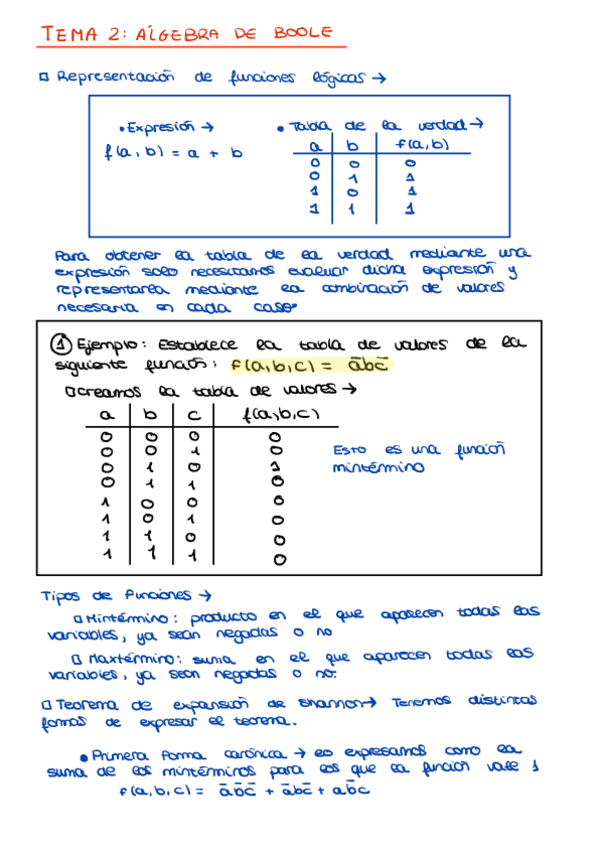 TEMA 2: ÁLGEBRA DE BOOLE
Representación de funciones lógicas →
• Expresión → • Tabla de la verdad →
f(a,b) = a + b
a b f(a,b)
0 0 0
0 1 1
1 0 1
1 1 1
Para obtener la tabla de la verdad mediante una
expresión solo necesitamos evaluar dicha expresión y
representarla mediante la combinación de valores
necesaria en cada caso
① Ejemplo: Establece la tabla de valores de la
siguiente función: f(a,b,c) = a̅bc̅
Creamos la tabla de valores →
a b c f(a,b,c)
0 0 0 0
0 0 1 0
0 1 0 1
0 1 1 0
1 0 0 0
1 0 1 0
1 1 0 0
1 1 1 0
Esto es una función
mintérmino
Tipos de funciones →
Mintérmino: producto en el que aparecen todas las
variables, ya sean negadas o no
Maxtérmino: suma en el que aparecen todas las
variables, ya sean negadas o no.
Teorema de expansión de Shannon → Tenemos distintas
formas de expresar el teorema.
• Primera forma canónica → lo expresamos como la
suma de los mintérminos para los que la función vale 1
f(a,b,c) = a̅b̅c̅ + a̅bc̅ + ab̅c